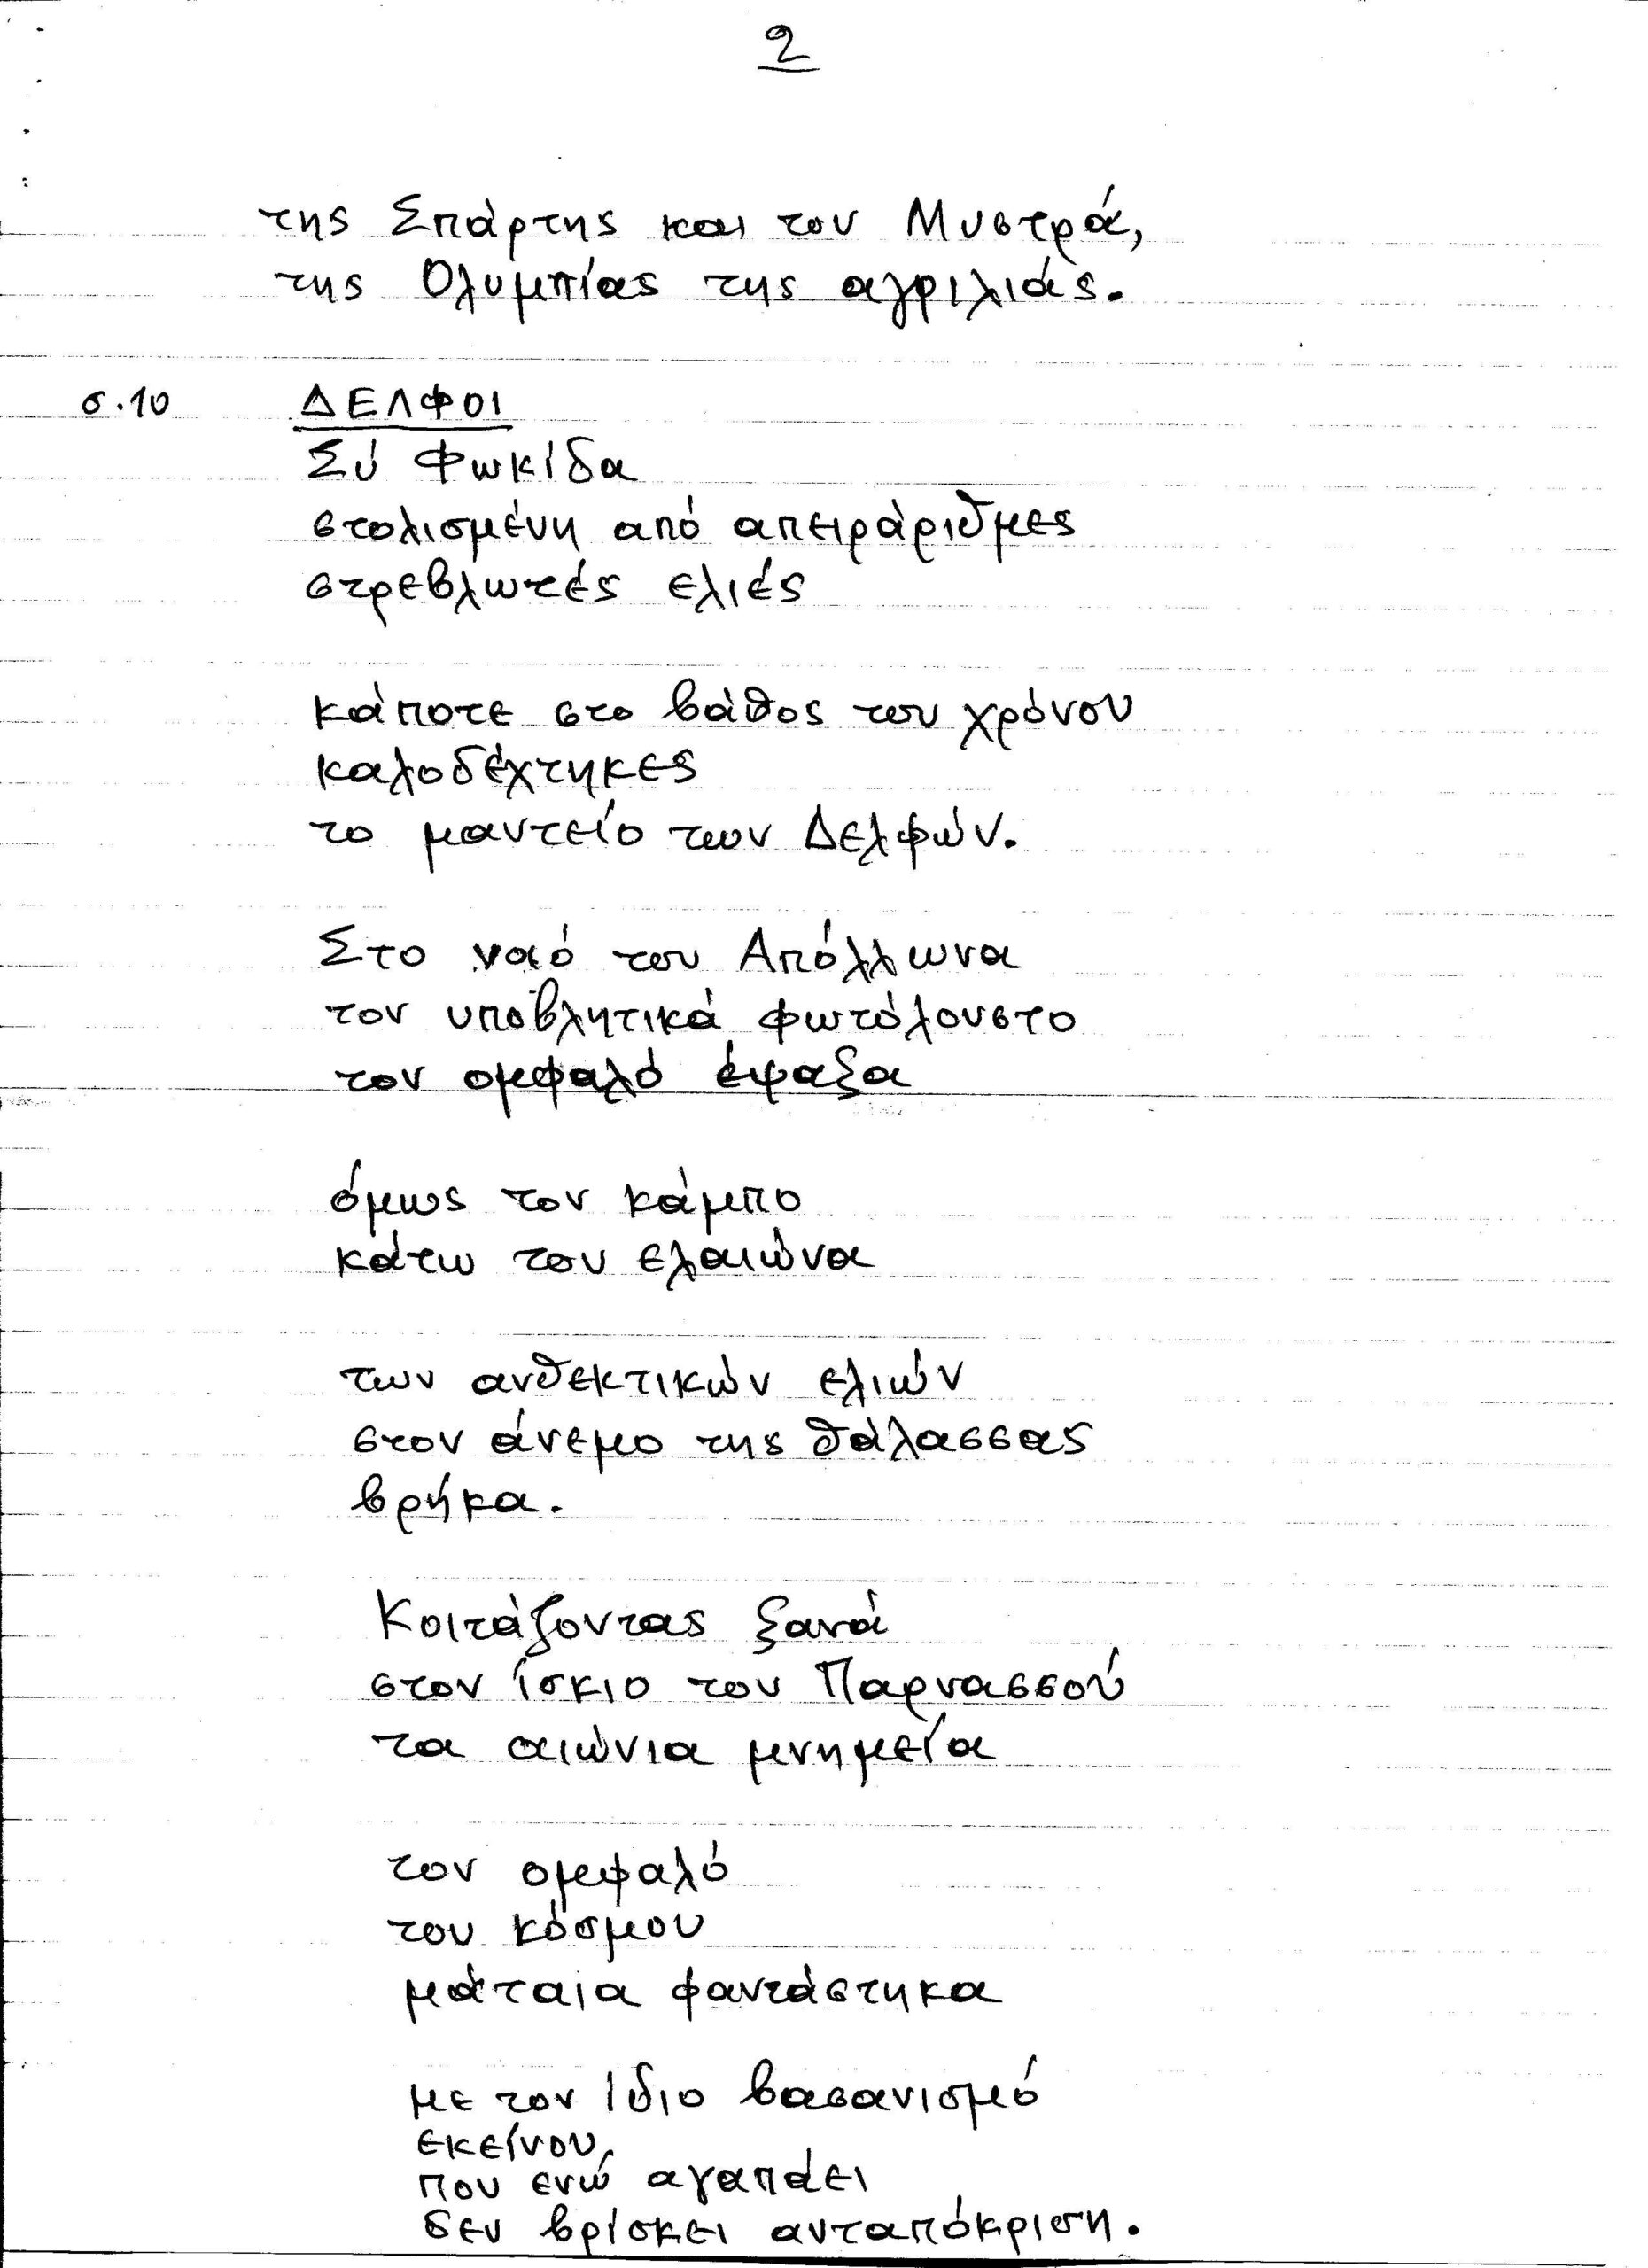 2
της Σπάρτης και του Μυστρά,
της Ολυμπίας της αγριλιάς.
σ.10 ΔΕΛΦΟΙ
Σύ Φωκίδα
στολισμένη από απειράριθμες
στρεβλωτές ελιές
κάποτε στο βάθος του χρόνου
καλοδέχτηκες
το μαντείο των Δελφών.
Στο ναό του Απόλλωνα
τον υποβλητικά φωτόλουστο
τον ομφαλό έψαξα
όμως τον κάμπο
κάτω του ελαιώνα
των ανθεκτικών ελιών
στον άνεμο της θάλασσας
βρήκα.
Κοιτάζοντας ξανά
στον ίσκιο του Παρνασσού
τα αιώνια μνημεία
τον ομφαλό
του κόσμου
μάταια φαντάστηκα
με τον ίδιο βασανισμό
εκείνου,
που ενώ αγαπάει
δεν βρίσκει ανταπόκριση.